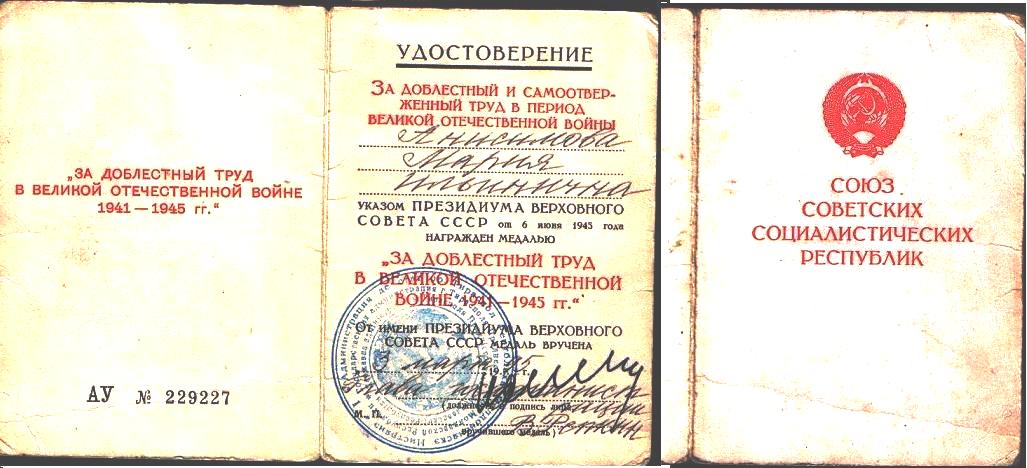 „ЗА ДОБЛЕСТНЫЙ ТРУД
В ВЕЛИКОЙ ОТЕЧЕСТВЕННОЙ ВОЙНЕ
1941—1945 гг.“
АУ № 229227
УДОСТОВЕРЕНИЕ
ЗА ДОБЛЕСТНЫЙ И САМООТВЕР-
ЖЕННЫЙ ТРУД В ПЕРИОД
ВЕЛИКОЙ ОТЕЧЕСТВЕННОЙ ВОЙНЫ
Анисимова
Мария
Ильинична
УКАЗОМ ПРЕЗИДИУМА ВЕРХОВНОГО
СОВЕТА СССР от 6 июня 1945 года
НАГРАЖДЕН МЕДАЛЬЮ
„ЗА ДОБЛЕСТНЫЙ ТРУД
В ВЕЛИКОЙ ОТЕЧЕСТВЕННОЙ
ВОЙНЕ 1941—1945 гг.“
ОТ ИМЕНИ ПРЕЗИДИУМА ВЕРХОВНОГО
СОВЕТА СССР МЕДАЛЬ ВРУЧЕНА
3 марта г.
подпись лица,
М. П.
вручившего медаль)
СОЮЗ
СОВЕТСКИХ
СОЦИАЛИСТИЧЕСКИХ
РЕСПУБЛИК